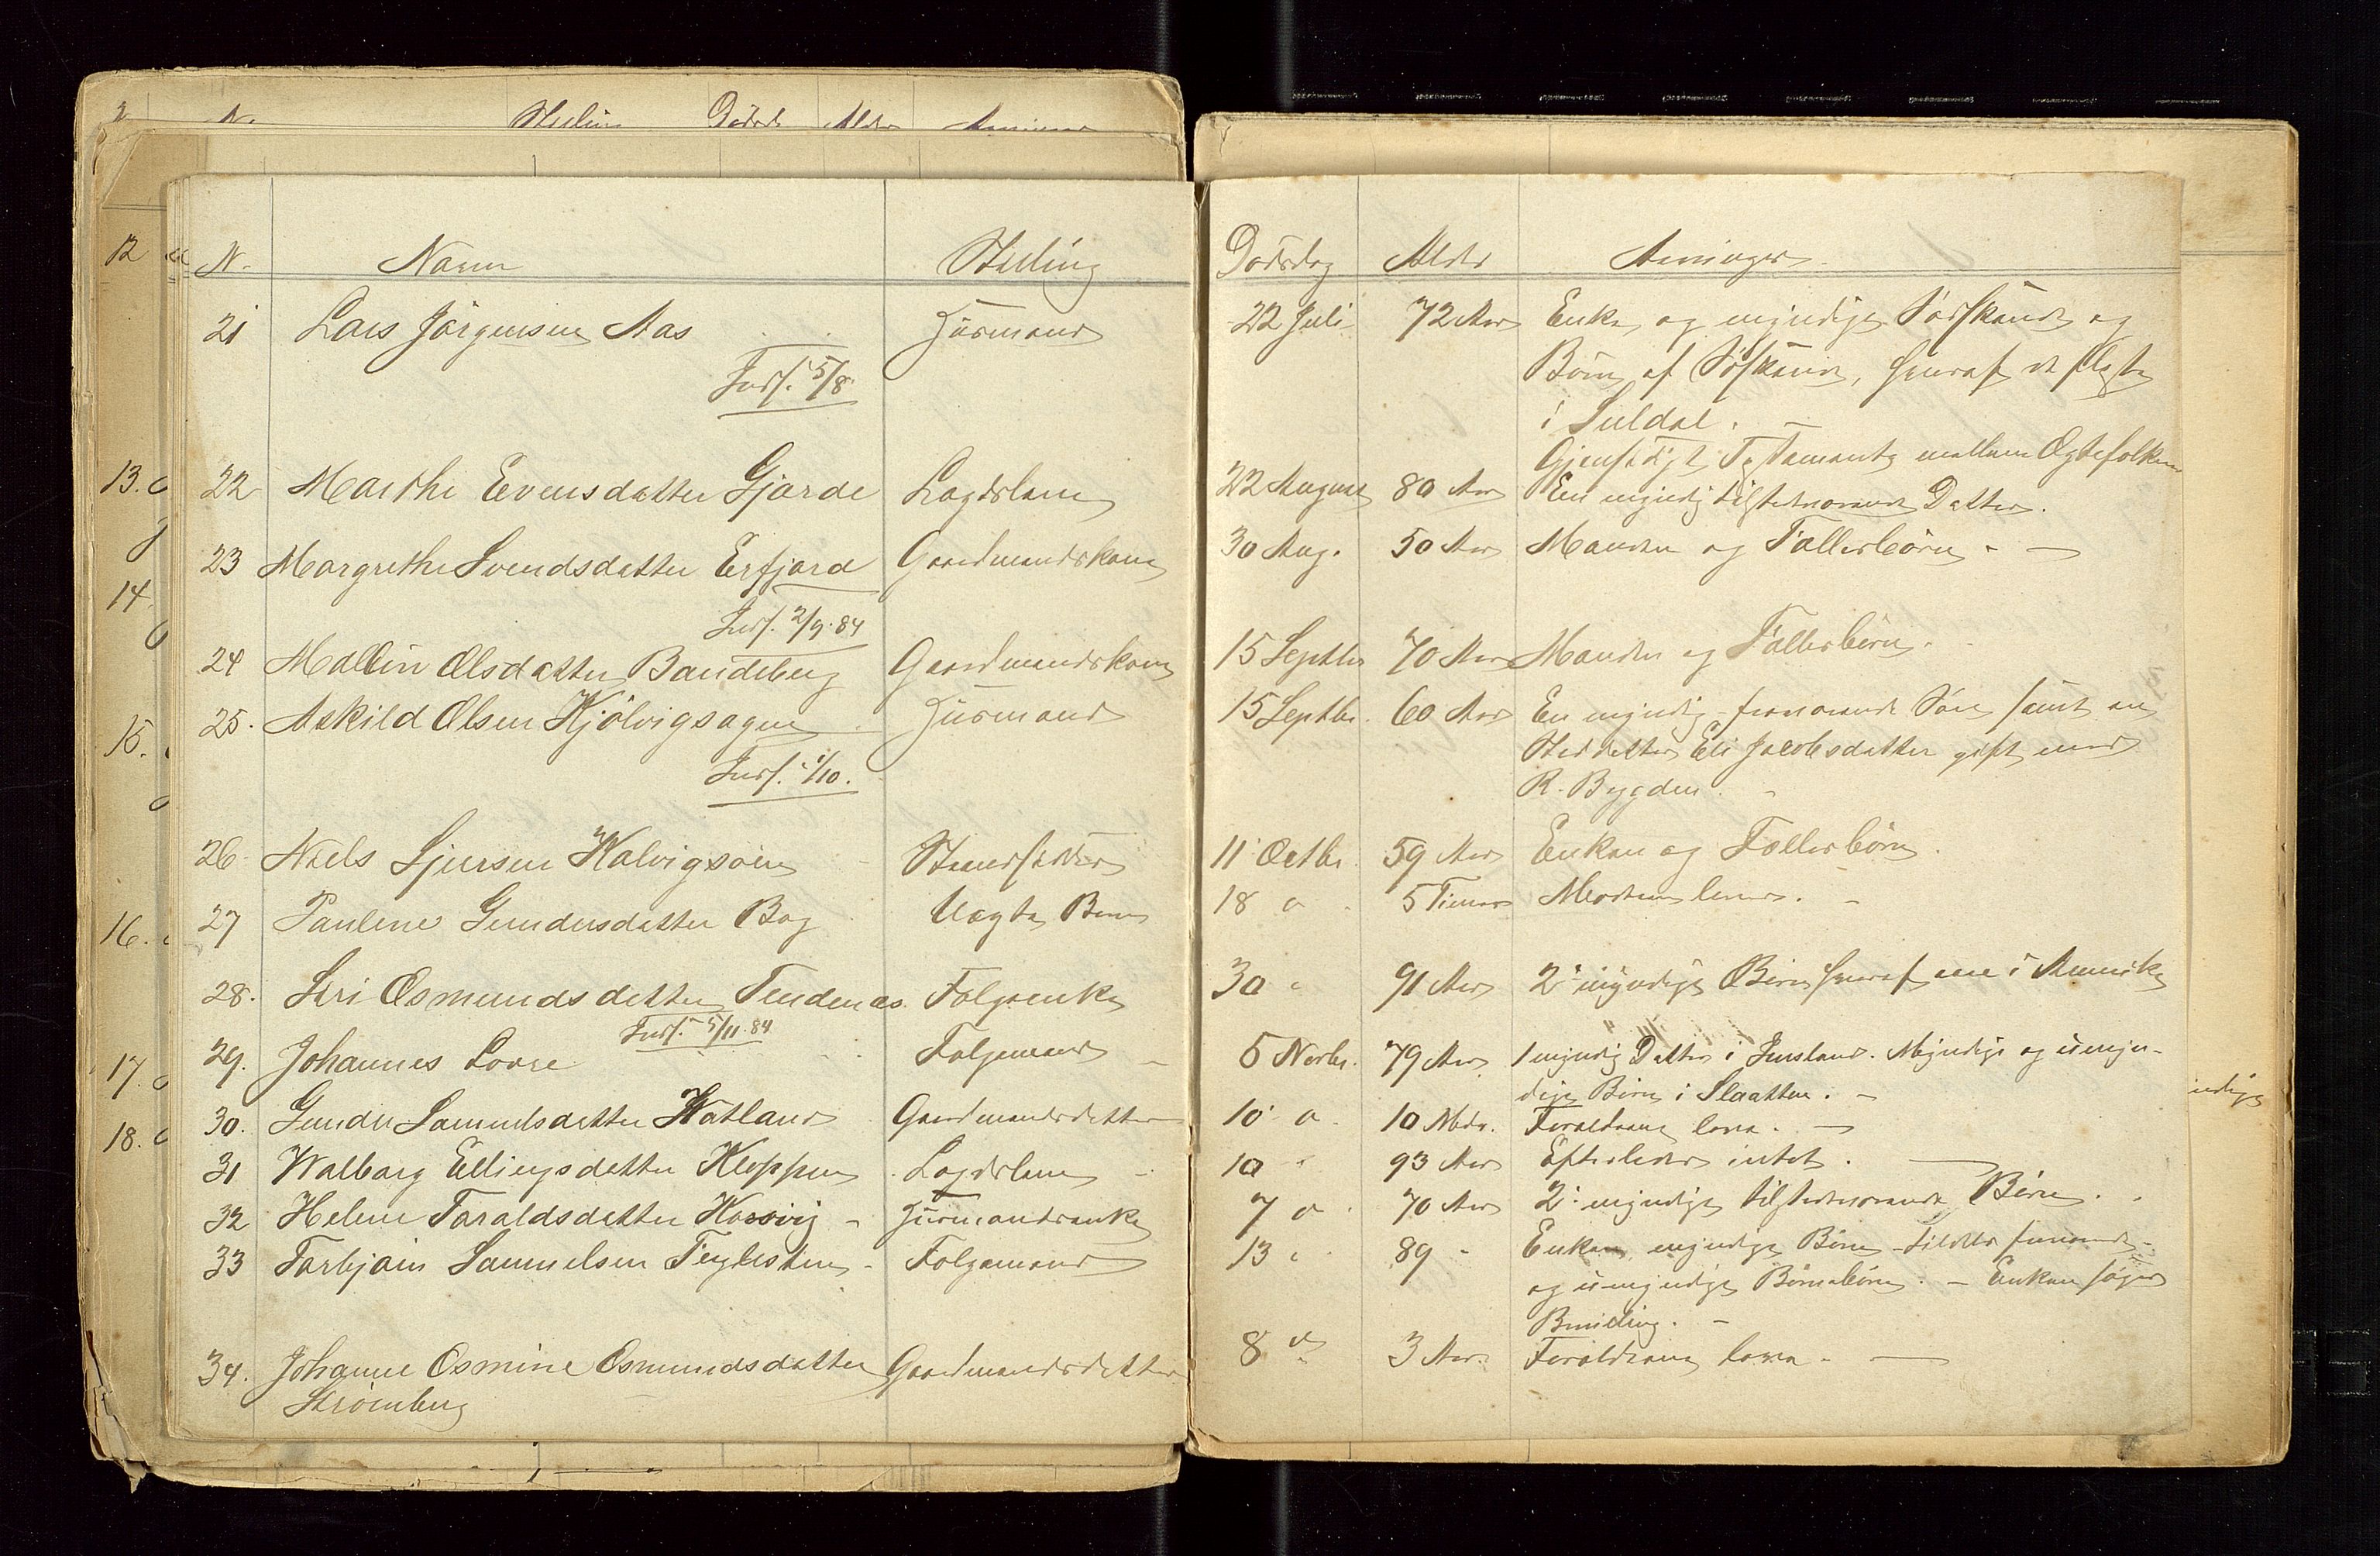 N. Navn Stilling Dødsdag Alder Arvinger
21 Lars Jörgensen Aas Husmand 22 Juli 72 Aar Enke og myndige Södskende og
Indf. 5/8 Börn af Södskende, hvoraf de fleste
i Suldal. -
Gjensidigt Testamente mellem Ægtefolkene
22 Marthe Evensdatter Gjerde Lægdslem 22 August 80 Aar En myndig tilstedeværende Datter.
23 Margrethe Svendsdatter Erfjord Gaardmandskone 30 Aug. 50 Aar Manden og Fællesbörn. -
Indf. 2/9. 84
24 Mallin Olsdatter Bandeberg Gaardmandskone 15 Septbr 70 Aar Manden og Fællesbörn.
25. Askild Olsen Hjölvigsagen Husmand 15 Septbr. 60 Aar En myndig fraværende Sön samt en
Steddatter Eli Jacobsdatter gift med
Indf. 1/10. R. Bygden. -
26 Niels Sjursen Halvigsöen 11 Octbr. 59 Aar Enken og Fællesbörn.
27 Paulene Gundersdatter Bog Uægte Barn 18 " 5 Timer Moderen lever. -
28. Siri Osmundsdatter Tendenes. Folgeenke 30 " 91 Aar 2 myndige Börn hvoraf en i Amerika
Indf. 5/11. 84
29. Johannes Lovre Folgemand 5 Novbr. 79 Aar 1 myndig Datter i Indland. Myndige og umyn-
dige Börn i Slaatten. -
30. Samuelsdatter Hatland Gaardmandsdatter 10 " 10 Mdr. Forældrene leve. -
31 Walborg Ellingsdatter Kleppen Lægdslem 10 " 93 Aar Efterlader intet.
32 Helene Taraldsdatter Husmandsenke 7 " 70 Aar 2 myndige tilstedeværende Börn.
33 Torbjörn Samuelsen Teglesteen Folgemand 13 " 89 " Enken myndige Börn
og umyndige Börnebörn. - Enken söger
Bevilling. -
34. Johanne Osmine Osmundsdatter Gaardmandsdatter 8 " 3 Aar. Forældrene leve. -
Strömberg